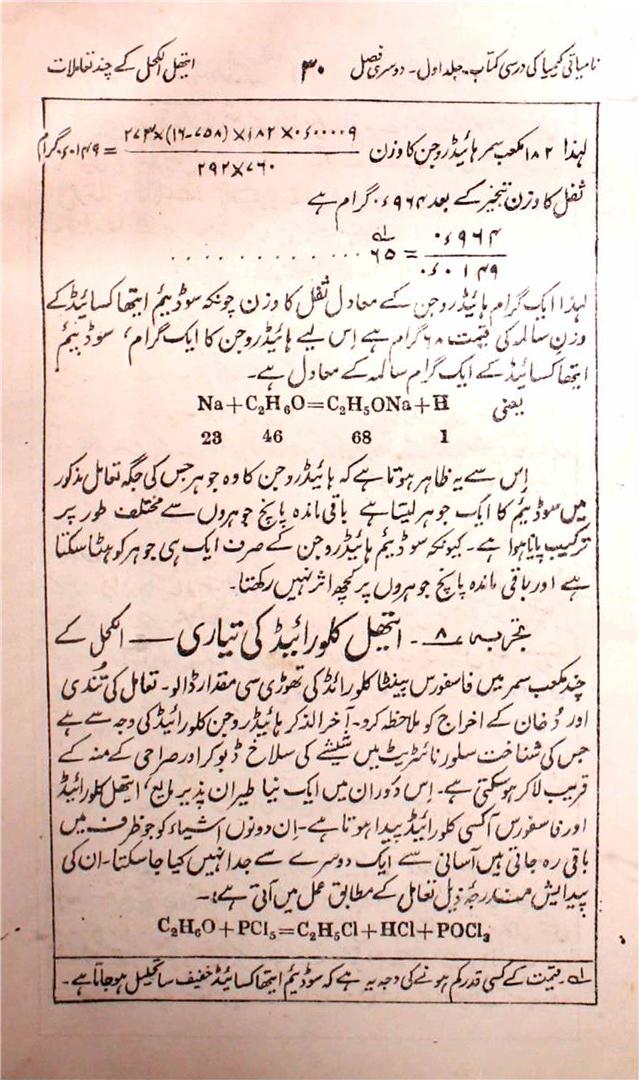 نامیاتی کیمیا کی درسی کتاب۔ جلد اول۔ دوسری فصل ۳۰ ایتھل الکحل کے چند تعاملات
لہٰذا ۱۸۲ مکعب سمر ہائیڈروجن کا وزن = ۲۷۳×(۱۶-۷۵۸)×۱۸۲×۰۶۰۰۰۰۹ = ۰۶۰۱۴۹ گرام
۲۹۲×۷۶۰
ثفل کا وزن تبخیر کے بعد ۰۶۹۶۴ گرام ہے
۰۶۹۶۴
۰۶۰۱۴۹ = ۶۵ لہ . . . . . . . . . . .
لہٰذا ایک گرام ہائیڈروجن کے معادل ثفل کا وزن چونکہ سوڈیئم ایتھاکسائیڈ کے
وزن سالمہ کی قیمت ۶۸ گرام ہے اِس لیے ہائیڈروجن کا ایک گرام، سوڈیئم
ایتھاکسائیڈ کے ایک گرام سالمہ کے معادل ہے۔
یعنی Na+C₂H₆O=C₂H₅ONa+H
23 46 68 1
اِس سے یہ ظاہر ہوتا ہے کہ ہائیڈروجن کا وہ جوہر جس کی جگہ تعامل مذکور
میں سوڈیئم کا ایک جوہر لیتا ہے باقی ماندہ پانچ جوہروں سے مختلف طور پر
ترکیب پایا ہوا ہے۔ کیونکہ سوڈیئم ہائیڈروجن کے صرف ایک ہی جوہر کو ہٹا سکتا
ہے اور باقی ماندہ پانچ جوہروں پر کچھ اثر نہیں رکھتا۔
تجربہ ۸۔ ایتھل کلورائیڈ کی تیاری — الکحل کے
چند مکعب سمر میں فاسفورس پینٹا کلورائڈ کی تھوڑی سی مقدار ڈالو۔ تعامل کی تُندی
اور دُخان کے اخراج کو ملاحظہ کرو۔ آخر الذکر ہائیڈروجن کلورائیڈ کی وجہ سے ہے
جس کی شناخت سلور نائٹریٹ میں شیشے کی سلاخ ڈبو کر اور صراحی کے منہ کے
قریب لا کر ہوسکتی ہے۔ اِس دَوران میں ایک نیا طیران پذیر مایع، ایتھل کلورائیڈ
اور فاسفورس آکسی کلورائیڈ پیدا ہوتا ہے۔ اِن دونوں اشیاء کو جو ظرف میں
باقی رہ جاتی ہیں آسانی سے ایک دوسرے سے جدا نہیں کیا جاسکتا۔ ان کی
پیدایش مندرجۂ ذیل تعامل کے مطابق عمل میں آتی ہے:۔
C₂H₆O+PCl₅=C₂H₅Cl+HCl+POCl₃
لہ۔ قیمت کے کسی قدر کم ہونے کی وجہ یہ ہے کہ سوڈیئم ایتھاکسائیڈ خفیف سا تحلیل ہوجاتا ہے۔